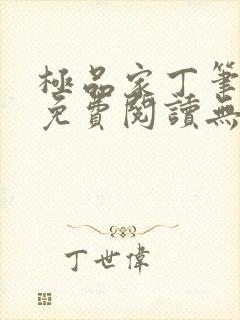 極品家丁筆
免費閱讀無
丁世偉